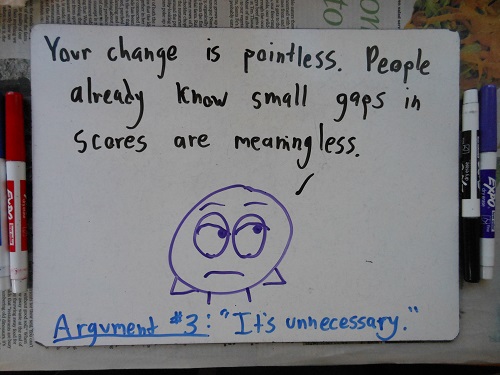 Your change is pointless. People
already know small gaps in
scores are meaningless.
Argument #3: "It's unnecessary."
EXPO
EXPO